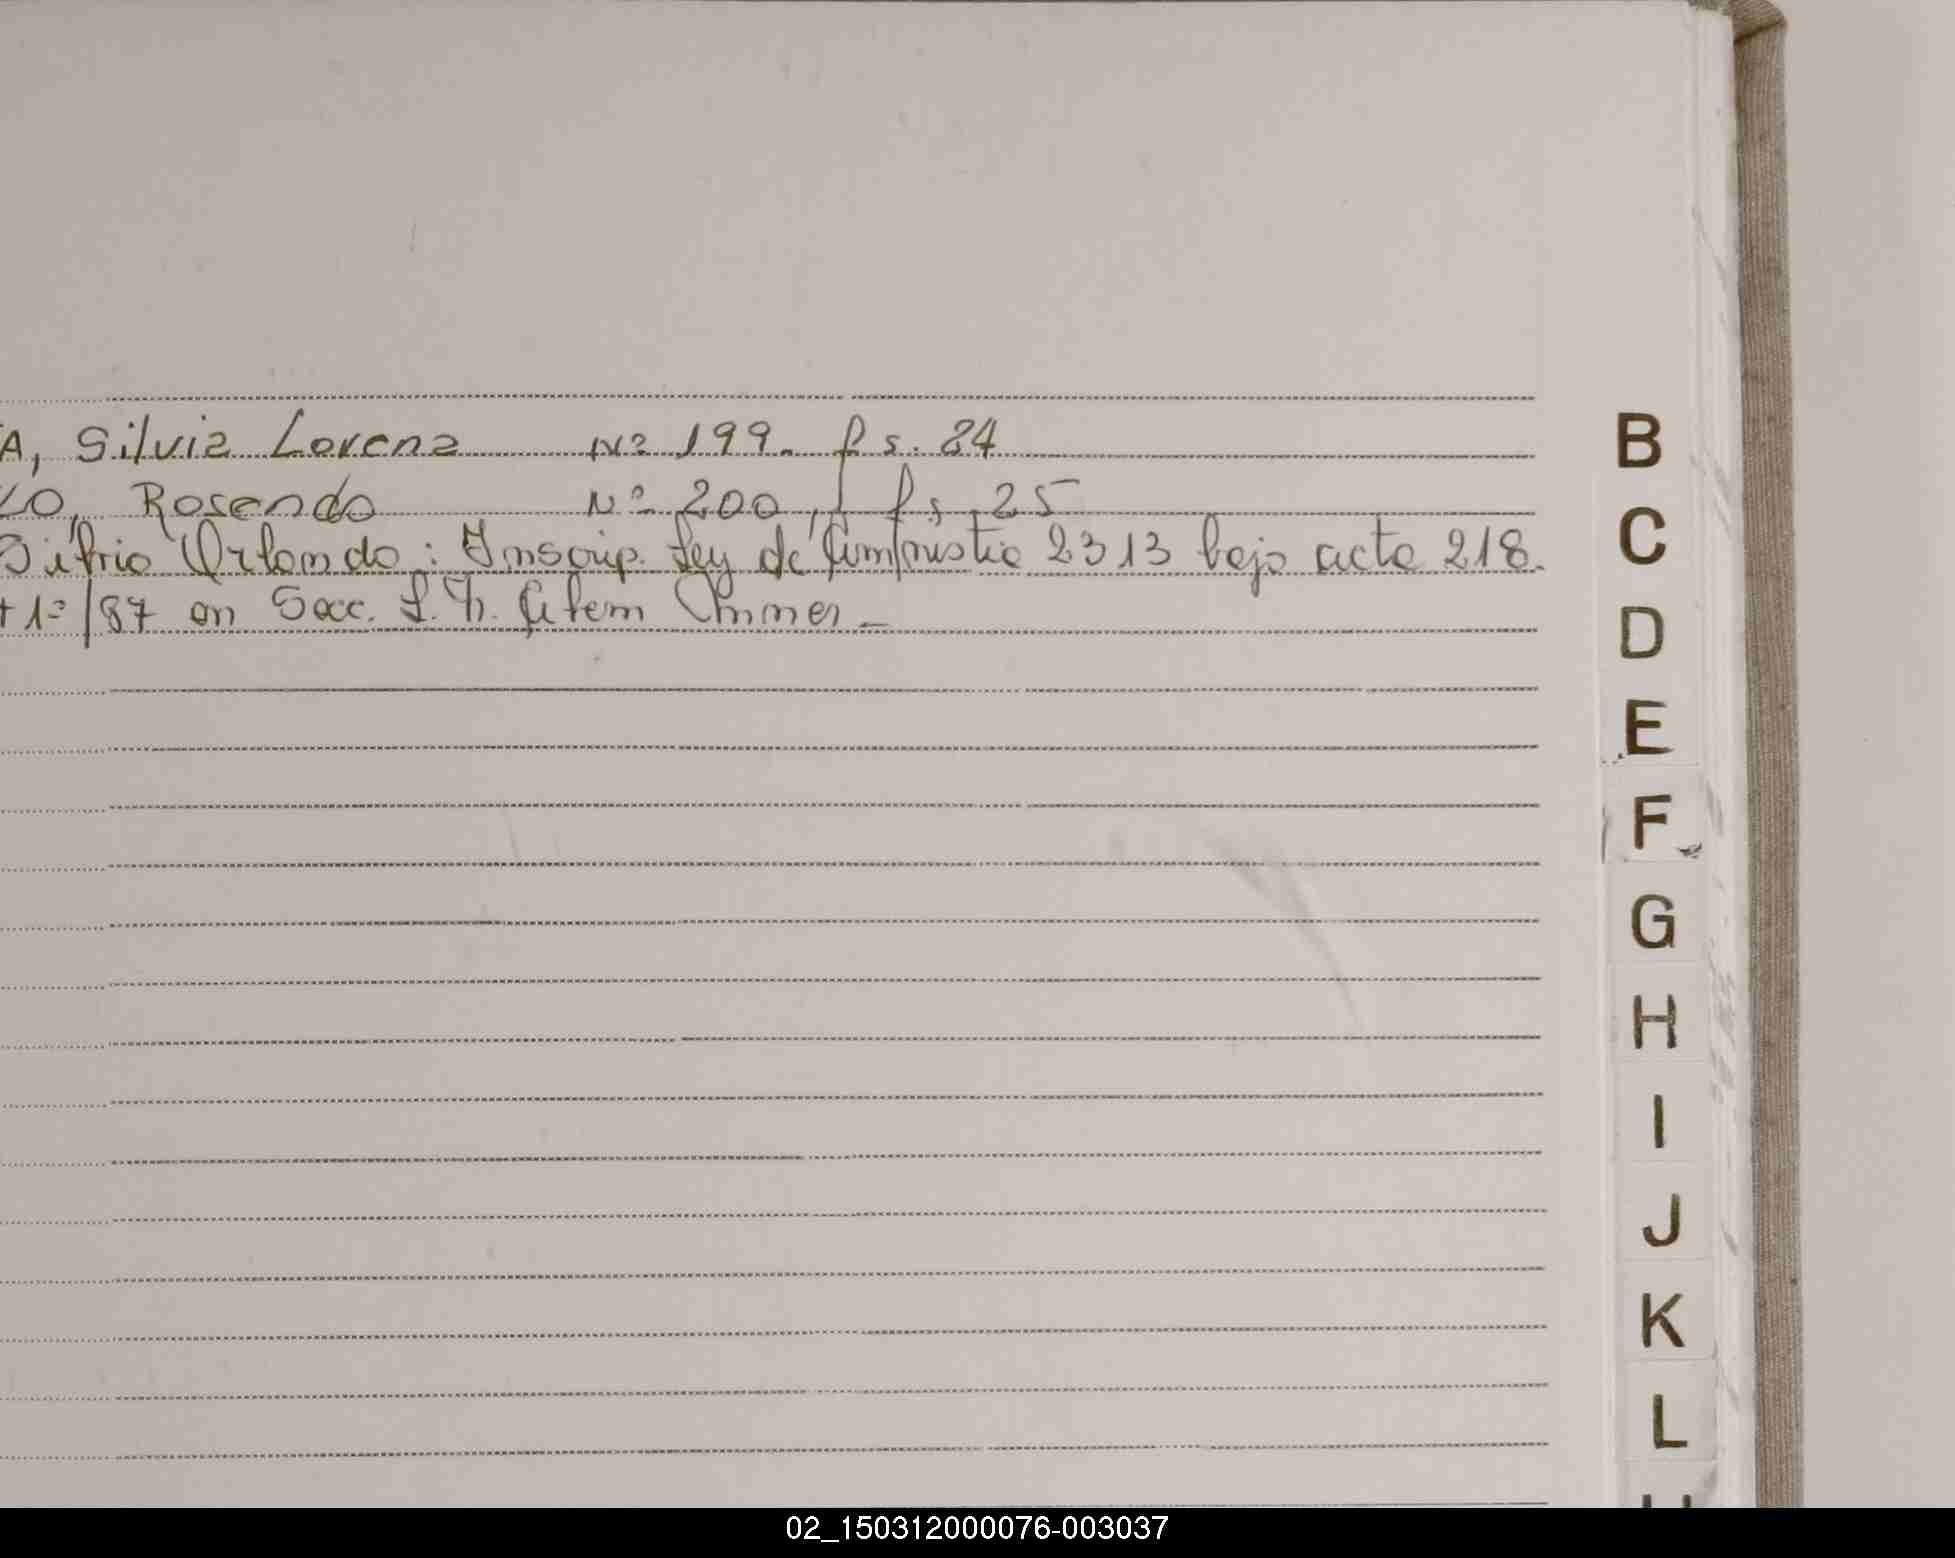 A, Silvia Lorena Nº 199. fs. 84
LO, Rosendo Nº 200, fs. 25
Orlando: Inscrip. Ley de Aministia 2313 bajo acta 218.
t 1º/87 en Secc. L. N. Alem
B
C
D
E
F
G
H
I
J
K
L
02_150312000076-003037